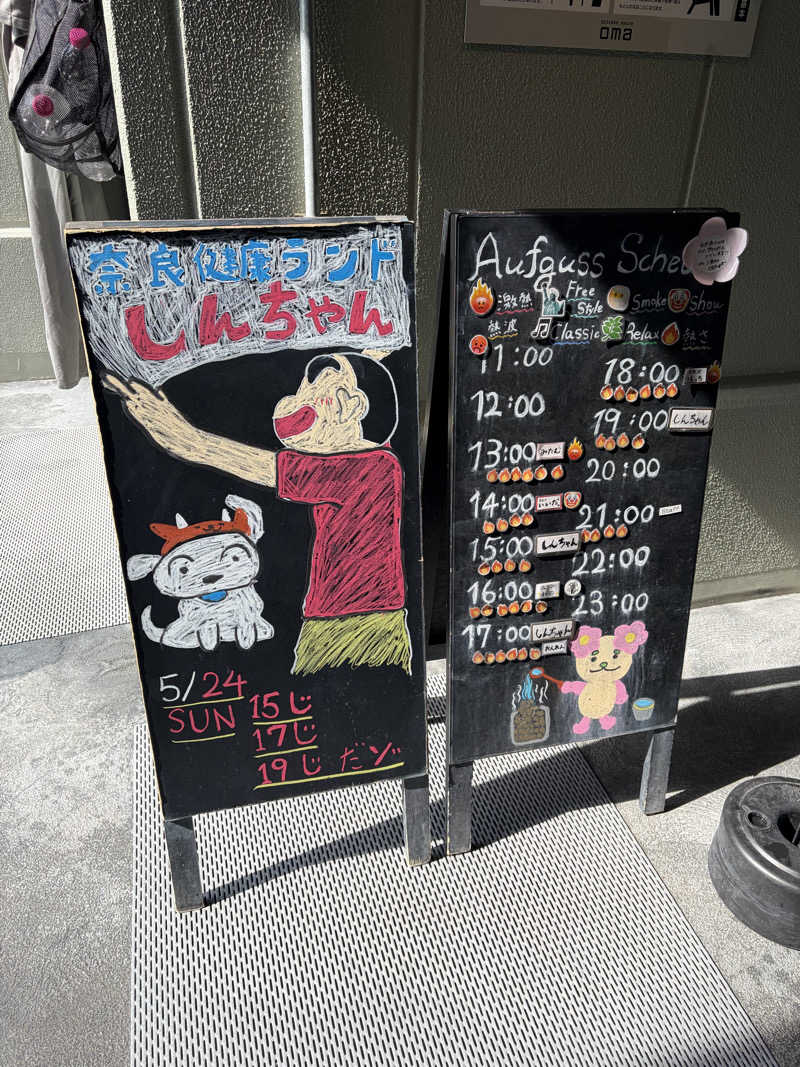 oma
奈良健康ランド
しんちゃん
5/24
SUN
15じ
17じ
19じ だゾ
Aufguss Sche
激熱
Free Style
Smoke
Show
熱波
Classic
Relax
熱さ
11:00
12:00
13:00
14:00
15:00 しんちゃん
16:00
17:00 しんちゃん
18:00
19:00 しんちゃん
20:00
21:00 Staff
22:00
23:00